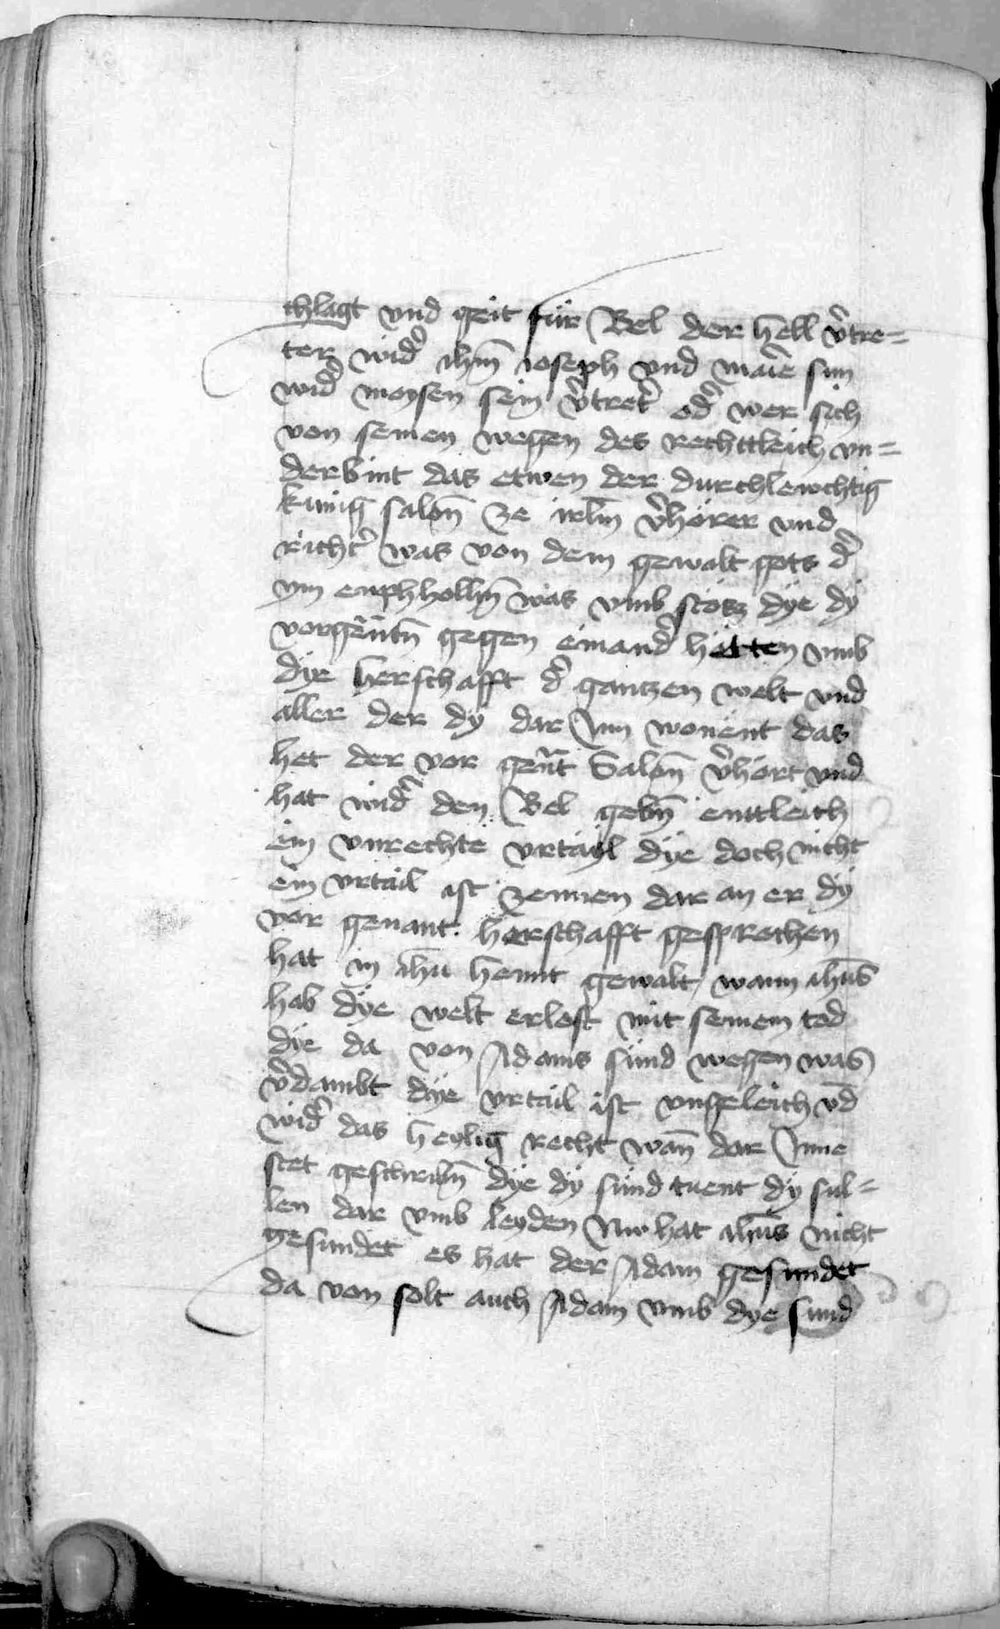 chlagt vnd geit für Bel der hell v̾tre=
ter wid̾ ih̄m ioseph vnd maīe sun
wid̾ moysen sein v̾tret̾ od̾ wer sich
von seinen wegen des rechttleich vn=
derbint das etwen der durchlewchtig
kunig salon̄ ze irl̄m v̾hörer vnd
richt̾ was von dem gewalt gots d̾
ym enphholhn̄ was vmb stösz dye dy
vorgēntn̄ gegen einand̾ hëtten vmb
dye herschafft d̾ gantzen welt vnd
aller der dy dar Inn wonent das
het der vor gen̄t Salon̄ v̾hört vnd
hat wid̾ den Bel gebn̄ enttleich
ein vnrechte vrtayl dye doch nicht
ein vrtail ist zennen dar an er dy
vor genant herschafft gesprochen
hat in ih̄u hennt gewalt wann ih̄us
hab dye welt erlost mit seinem tod
dye da von Adams sünd wegen was
v̾dambt dye vrtail ist vngeleich vd̄
wid̾ das heylig recht wan̄ dar Inne
stet geschribn̄ dye dy sünd tuent dy sul=
len dar vmb leyden Nw hat ih̄us nicht
gesundet es hat der Adam gesundet
da von solt auch Adam vmb dye sund